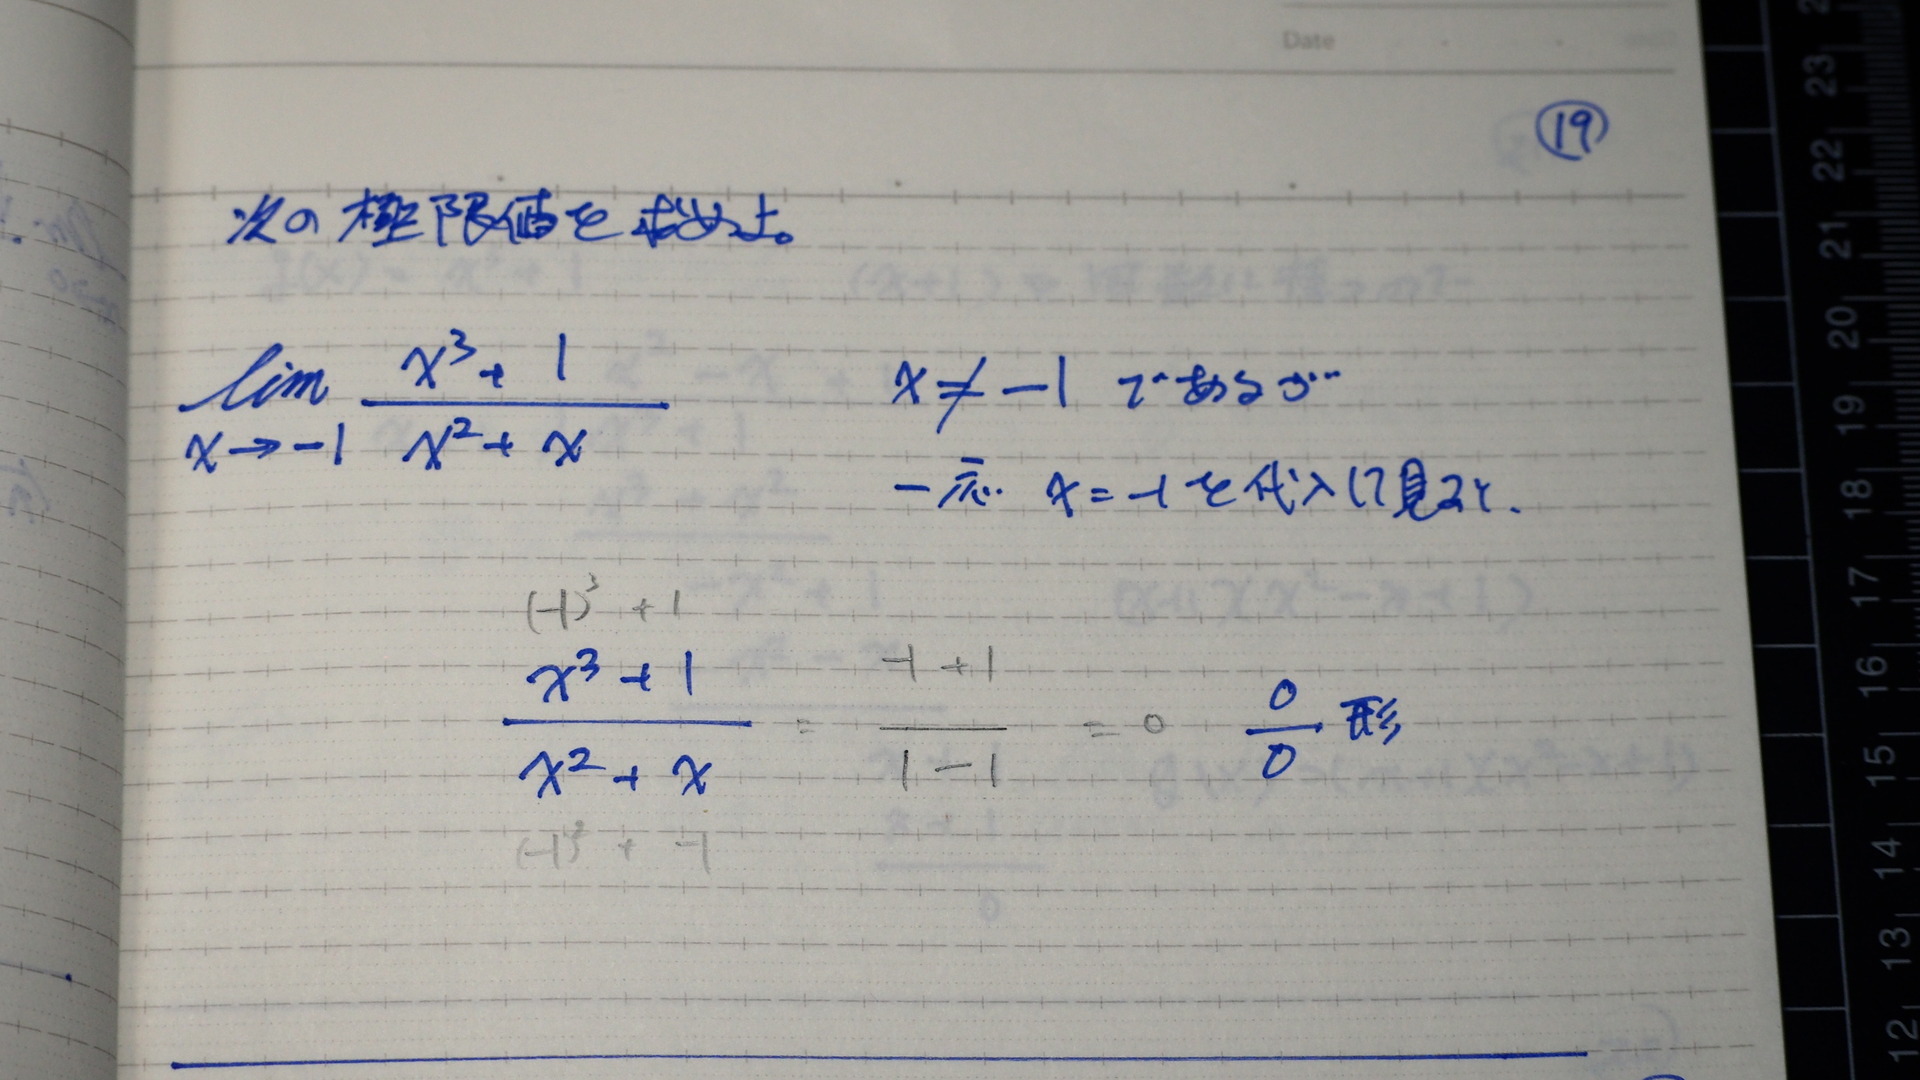 Date
19
次の極限値を求めよ。
lim x→-1 (x³ + 1)/(x² + x)
x ≠ -1 であるが…
一応 x = -1 を代入して見ると、
(-1)³ + 1
(x³ + 1)/(x² + x) = (-1 + 1)/(1 - 1) = 0 0/0 形
(-1)² + -1
23
22
21
20
19
18
17
16
15
14
13
12